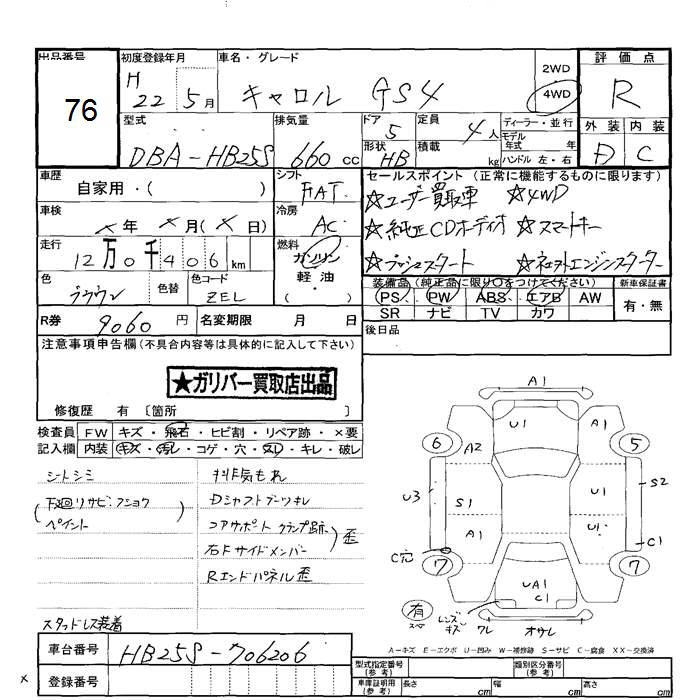 出品番号 76
初度登録年月 H 22 5月
車名・グレード キャロル GS4
2WD
4WD
評価点 R
外装 D 内装 C
型式 DBA-HB25S
排気量 660 cc
ドア 5
形状 HB
定員 4人
積載 kg
ディーラー・並行
モデル年式 年
ハンドル 左・右
車歴 自家用・( )
シフト FAT
車検 ×年 ×月(×日)
冷房 AC
走行 12万0千406km
燃料 ガソリン
軽油
・( )
色 ブラウン 色替
色コード ZEL
R券 9060円 名変期限 月 日
セールスポイント (正常に機能するものに限ります)
☆ユーザー買取車 ☆4WD
☆純正CDオーディオ ☆スマートキー
☆プッシュスタート ☆ネオストエンジンスターター
装備品 (純正品に限り○をつけてください) 新車保証書
PS PW ABS エアB AW 有・無
SR ナビ TV カワ
後日品
注意事項申告欄(不具合内容等は具体的に記入して下さい)
★ガリバー買取店出品
修復歴 有 〔箇所 〕
検査員 FW キズ・飛石・ヒビ割・リペア跡・×要
記入欄 内装 キズ・汚レ・コゲ・穴・スレ・キレ・破レ
シートシミ
(下廻りサビ・フショク
ペイント)
スタッドレス装着
排気もれ
Dシャフトブーツキレ
コアサポートクランプ跡
右Fサイドメンバー
) 歪
Rエンドパネル歪
A1
U1
A1
6
5
A2
U3
S1
U1
S2
A1
U1
C穴
C1
7
7
UA1
C1
有
レンズキズ
ワレ
オサレ
A=キズ E=エクボ U=凹み W=補修跡 S=サビ C=腐食 XX=交換済
車台番号 HB25S-706206
登録番号
型式指定番号(参考) 類別区分番号(参考)
車庫証明用(参考) 長さ cm 幅 cm 高さ cm
×